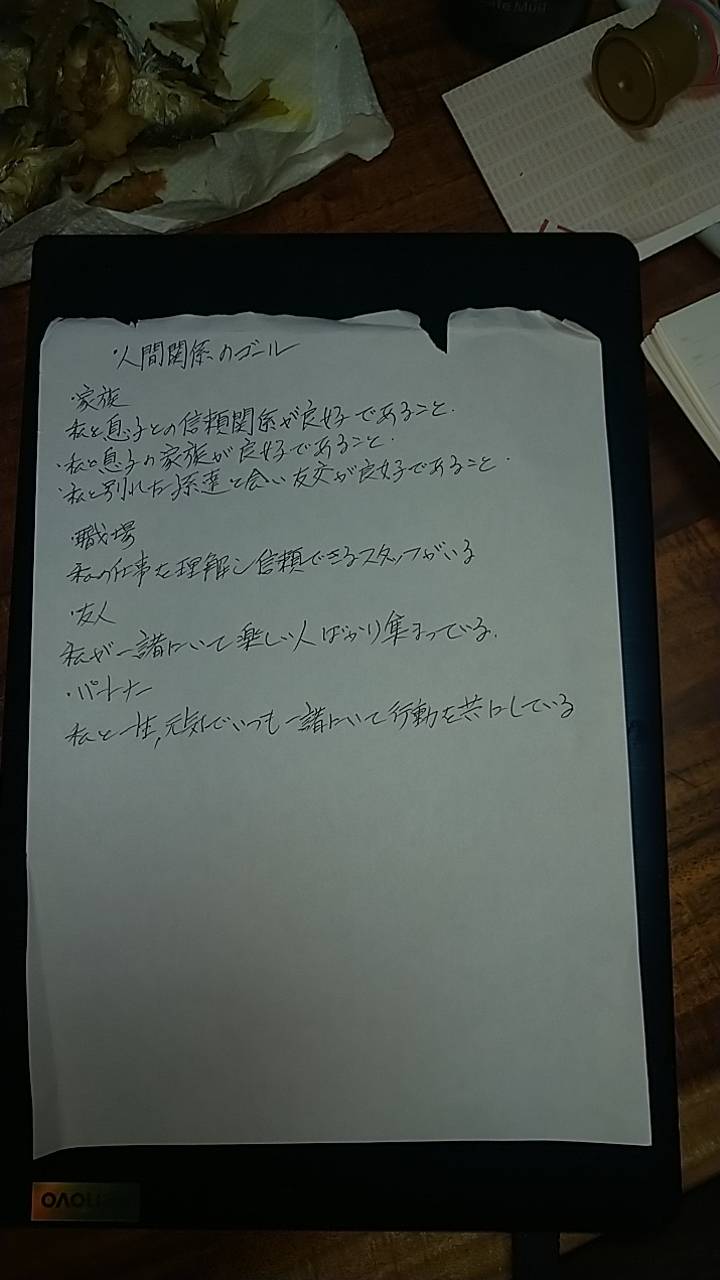 ・人間関係のゴール
・家族
私と息子との信頼関係が良好であること.
・私と息子の家族が良好であること.
・私と別れた孫達と会い友交が良好であること.
・職場
私の仕事を理解し信頼できるスタッフがいる
・友人
私が一諸にいて楽しい人ばかり集まっている.
・パートナー
私と一生,元気でいつも一諸にいて行動を共にしている
lenovo